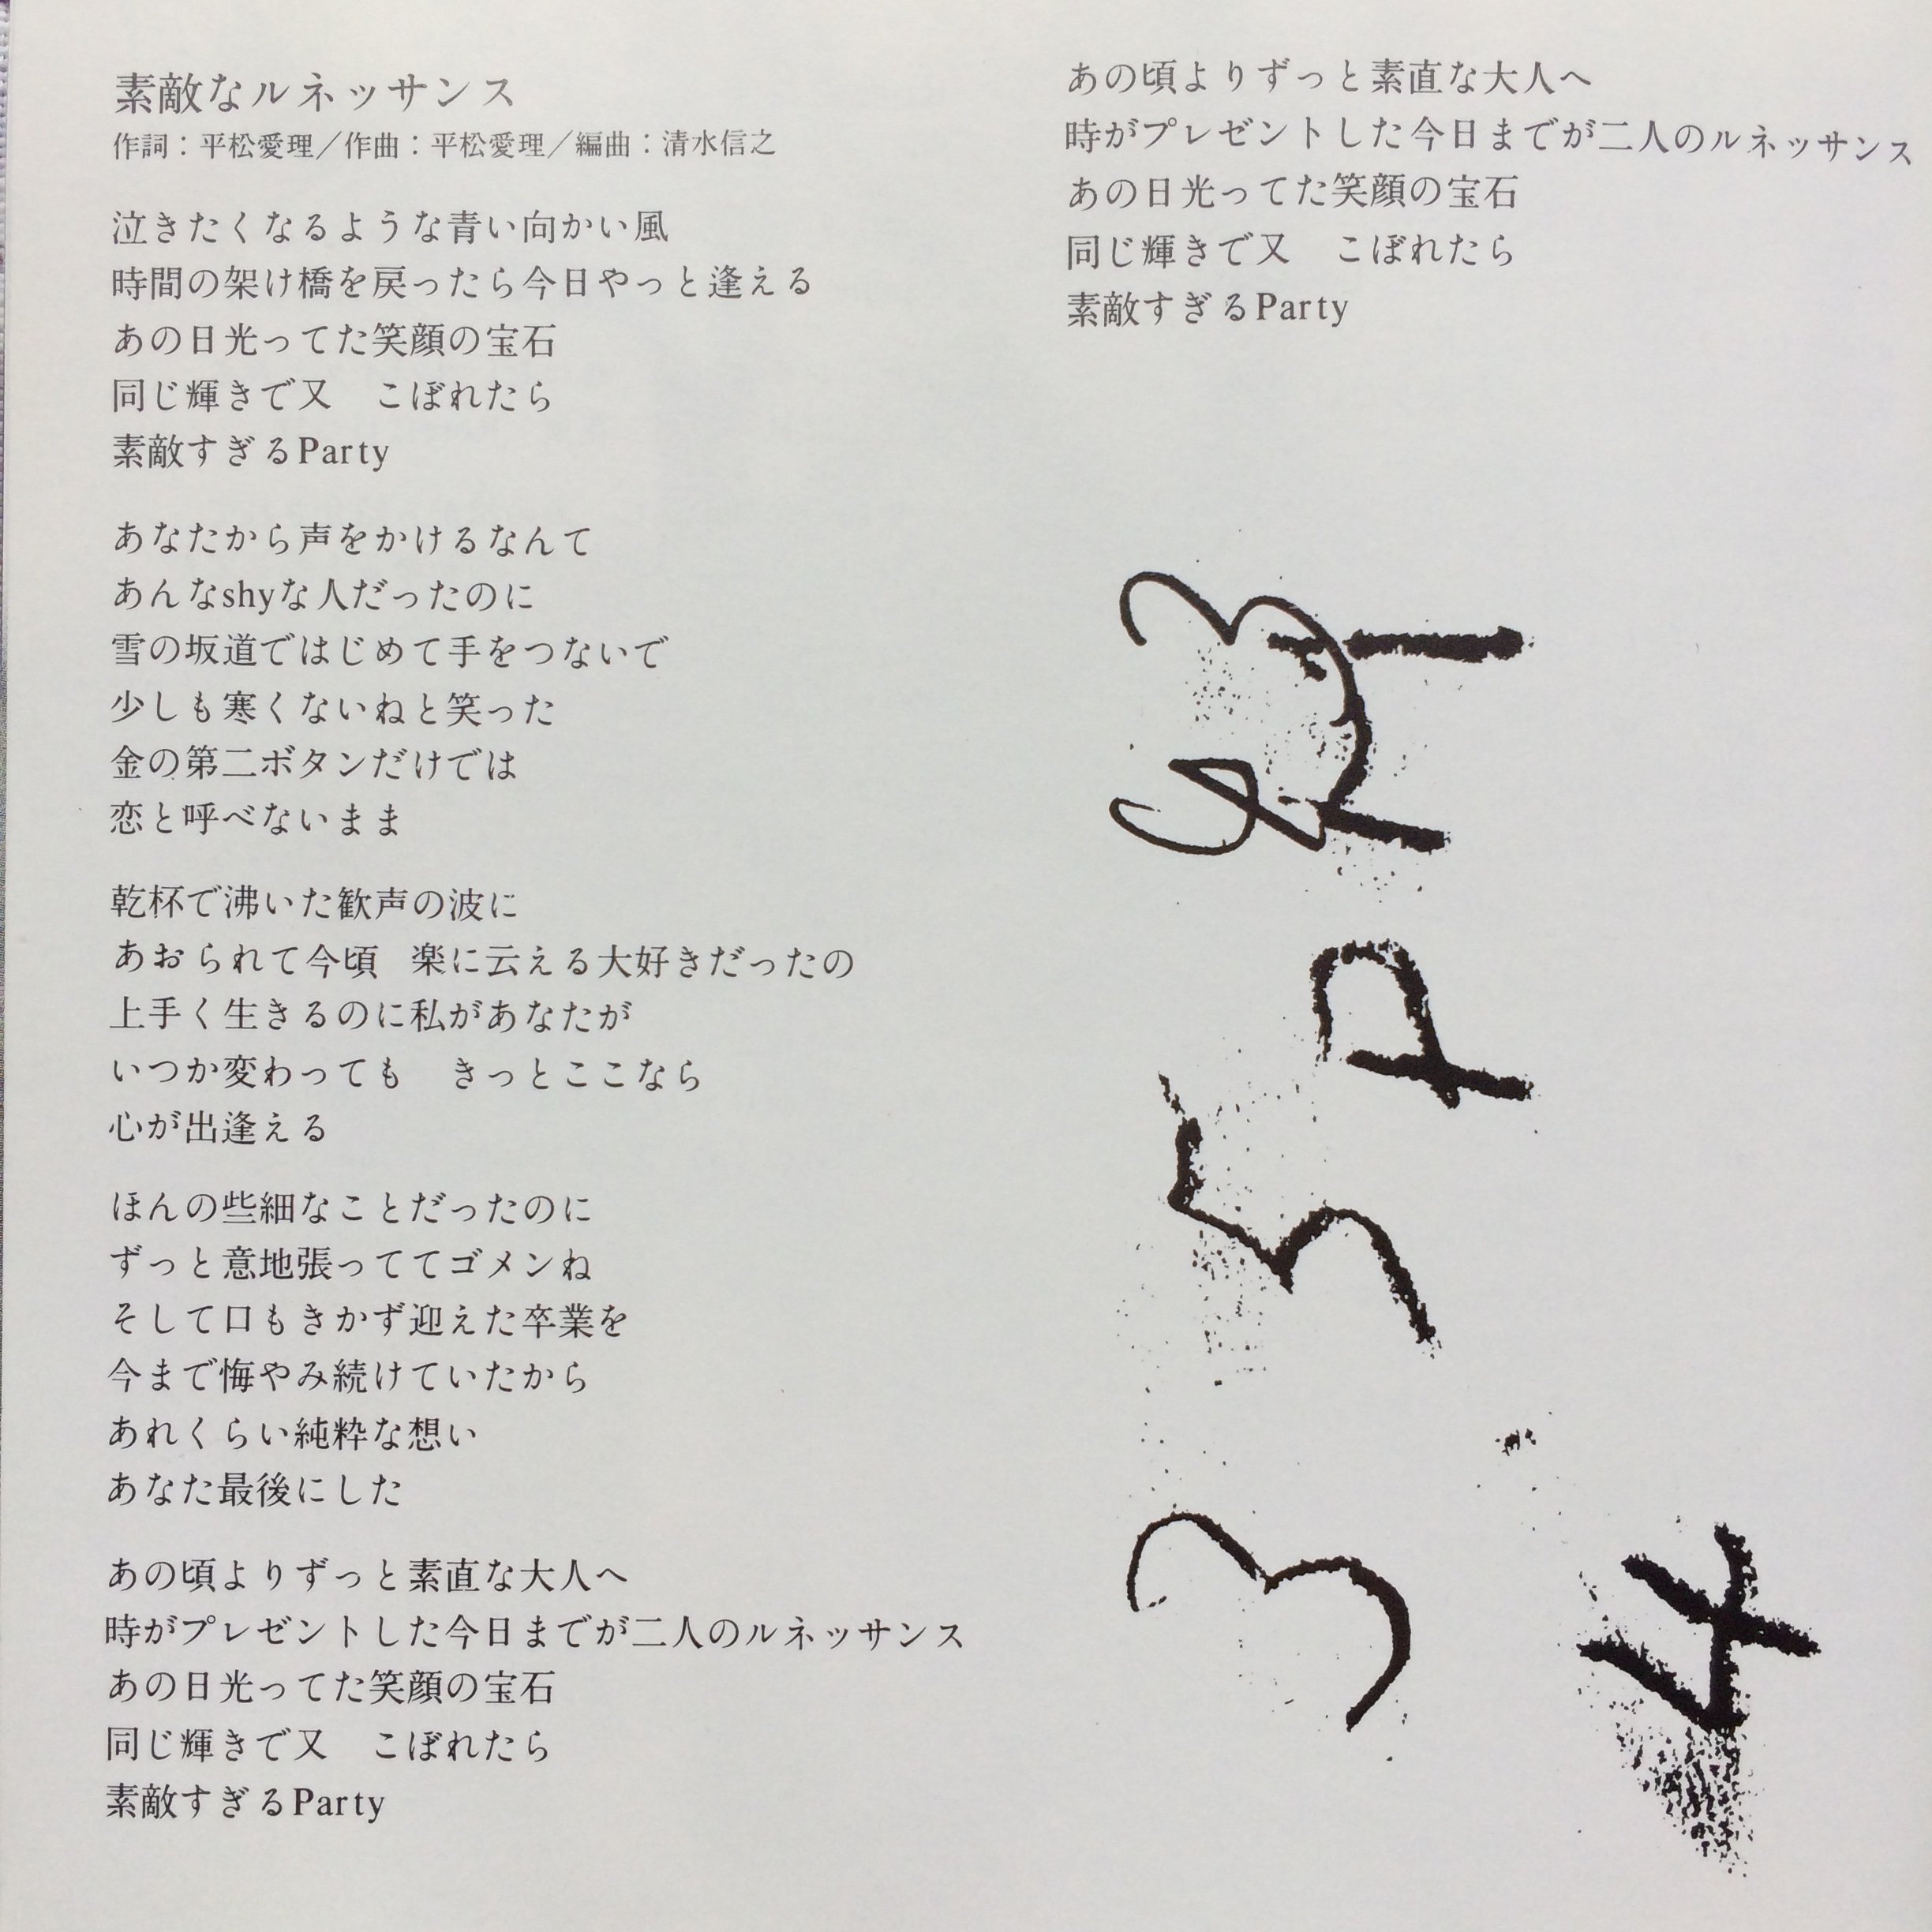 素敵なルネッサンス
作詞：平松愛理／作曲：平松愛理／編曲：清水信之
泣きたくなるような青い向かい風
時間の架け橋を戻ったら今日やっと逢える
あの日光ってた笑顔の宝石
同じ輝きで又　こぼれたら
素敵すぎるParty
あなたから声をかけるなんて
あんなshyな人だったのに
雪の坂道ではじめて手をつないで
少しも寒くないねと笑った
金の第二ボタンだけでは
恋と呼べないまま
乾杯で沸いた歓声の波に
あおられて今頃　楽に云える大好きだったの
上手く生きるのに私があなたが
いつか変わっても　きっとここなら
心が出逢える
ほんの些細なことだったのに
ずっと意地張っててゴメンね
そして口もきかず迎えた卒業を
今まで悔やみ続けていたから
あれくらい純粋な想い
あなた最後にした
あの頃よりずっと素直な大人へ
時がプレゼントした今日までが二人のルネッサンス
あの日光ってた笑顔の宝石
同じ輝きで又　こぼれたら
素敵すぎるParty
あの頃よりずっと素直な大人へ
時がプレゼントした今日までが二人のルネッサンス
あの日光ってた笑顔の宝石
同じ輝きで又　こぼれたら
素敵すぎるParty